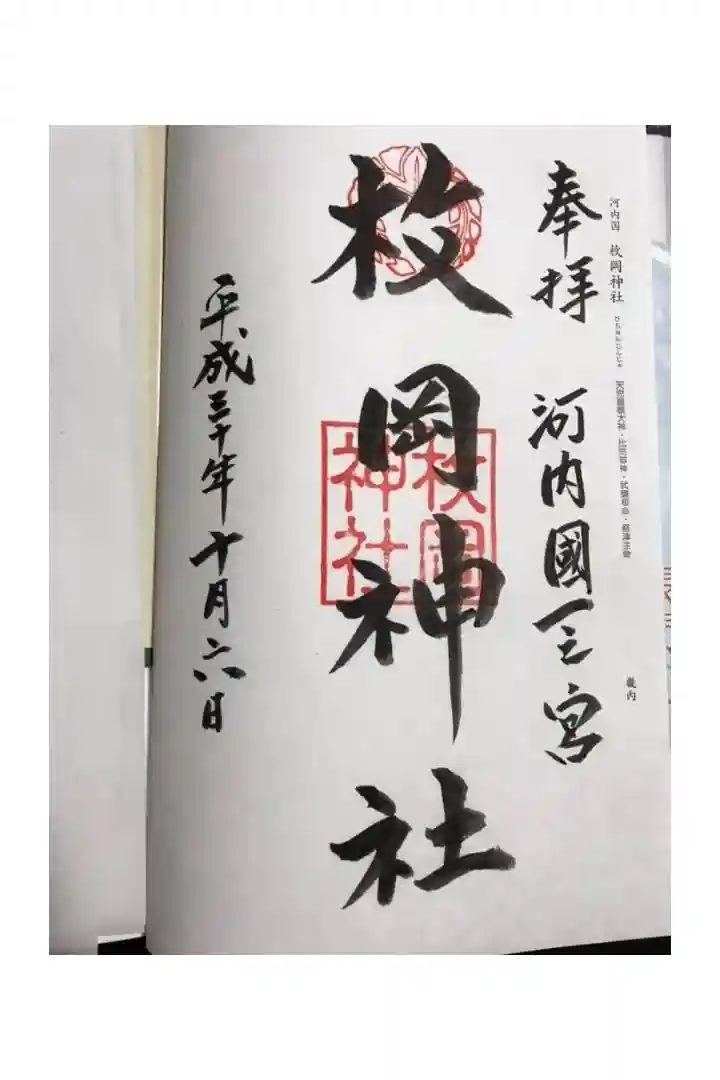 河内国 枚岡神社 ひらおかじんじゃ 天児屋根大神・比売御神・武甕槌命・経津主命
畿内
奉拝 河内國一之宮
枚岡神社
枚岡
神社
平成三十年十月六日